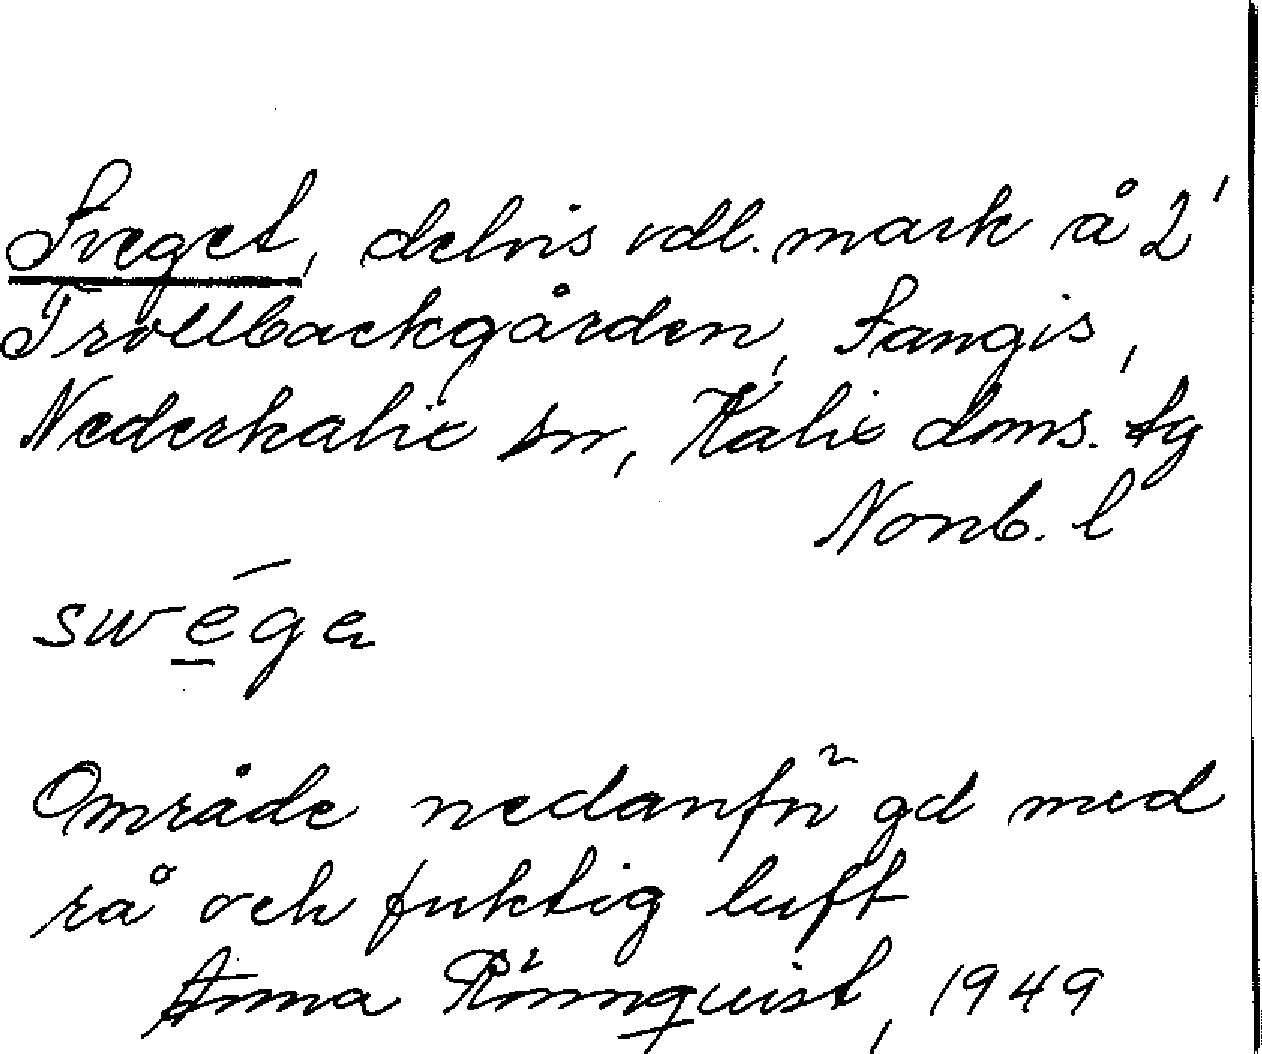 Sveget, delvis odl. mark å 2'
Trollbackgården, Sangis,
Nederkalix sn, Kalix doms. tg
Norrb. l
swēga
Område nedanför gd med
rå och fuktig luft
Anna Rönnquist, 1949